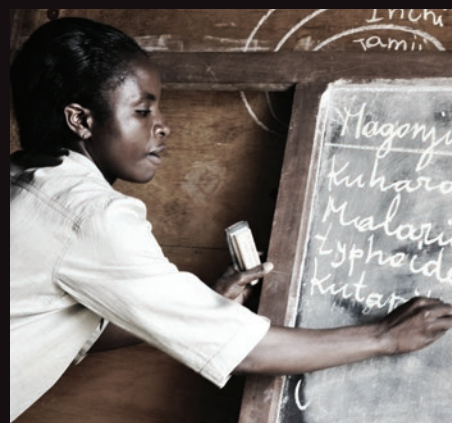 Inchi
Tamii
Magonj
Kuhar
Malari
Typhoide
Kutap